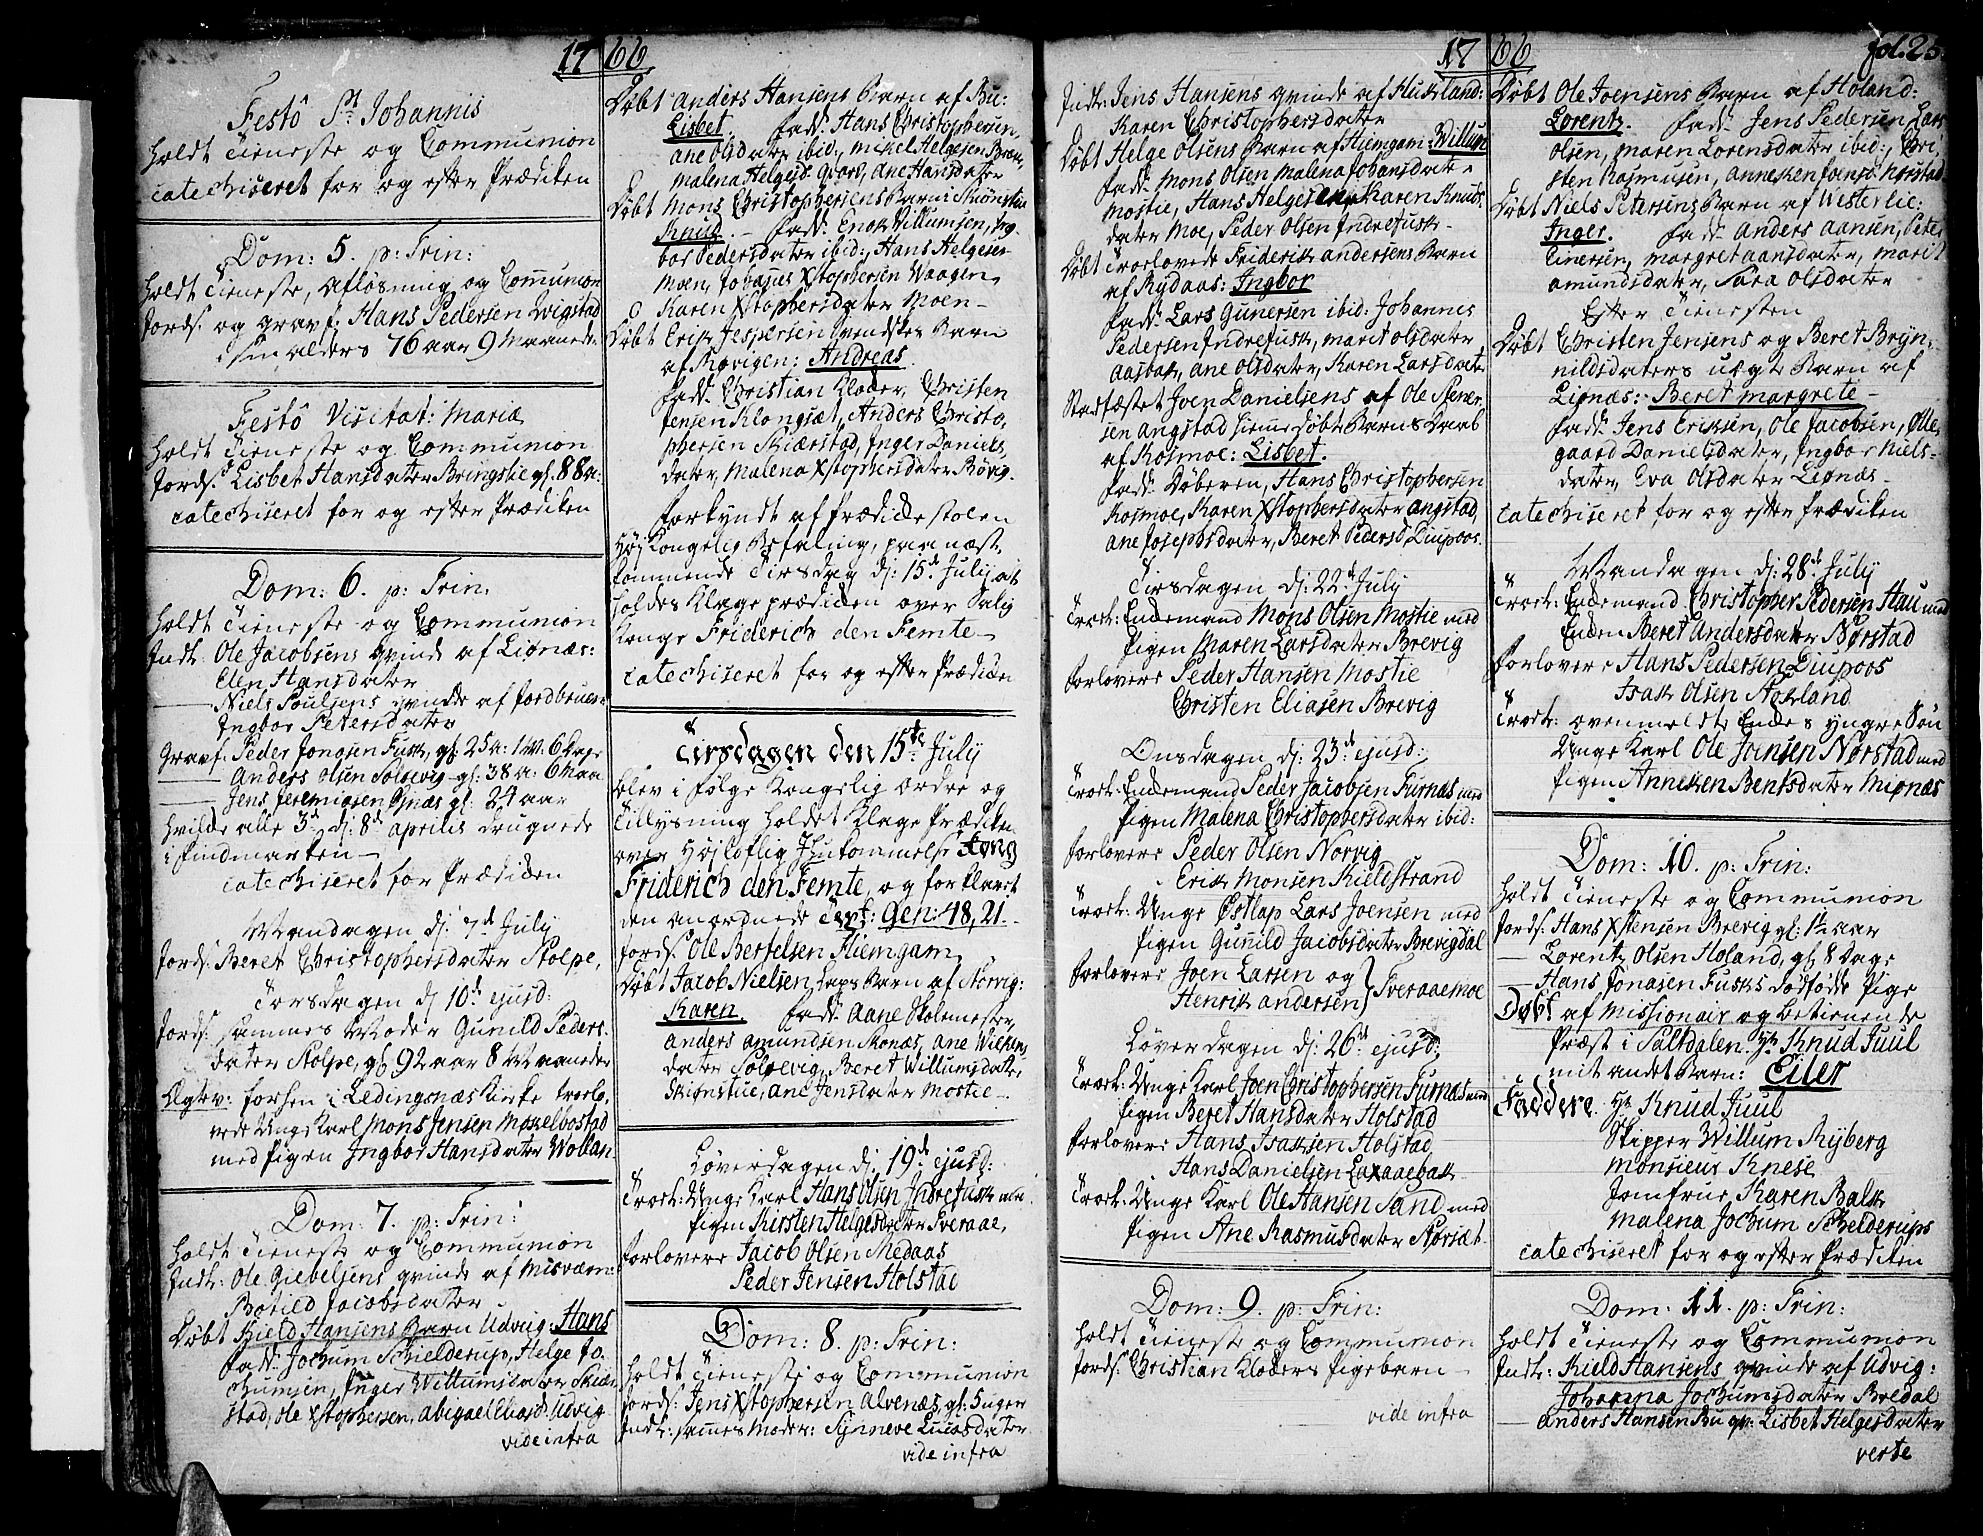 1766
Festô St Johannis
holdt Tieneste og Communion
catechiseret for og efter Prædiken
Dom: 5. p: Trin:
holdt Tieneste, afløsning og Communion
Jords: og gravf: Hans Pedersen Wigstad
i sin alders 76 aar 9 Maaneder
Festô Visitat: Mariæ
holdt Tieneste og Communion
Jords: Lisbet Hansdater Bringslie gl: 88 a:
catechiseret for og efter Prædiken
Dom: 6. p: Trin:
holdt Tieneste og Communion
Indl: Ole Jacobsens qvinde af Liønæs:
Elen Hansdater
— Niels Poulsens qvinde af Jordbruen:
Ingbor Petersdater
Gravf: Peder Jonasen Fusk, gl: 25 a: 1 M: 6 Dage
— Anders Olsen Solsevig gl: 38 a: 6 Maa
— Jens Jeremiasen gl: 24 aar
hvilke alle 3de d: 8de aprilis druknede
i
catechiseret for Prædiken
Mandagen d: 7de July
Jords: Beret Christophersdater Stolpe,
Torsdagen d 10de ejusd:
Jords: sammes Moder Gunild Peders-
dater Stolpe, gl: 92 aar 8 Maaneder
forhen i Ledingsnæs Kirke trorlo-
vede Unge Karl Mons Jensen Moxelbostad
med Pigen Ingbor Hansdater Wollan
Dom: 7. p: Trin:
holdt Tieneste og Communion
Indl: Ole Giebelsens qvinde af Misværn:
Botild Jacobsdater
Døbt Kield Hansens Barn Udvig: Hans
fadd: Jochum Schielderup, Helge Jo-
chumsen, Inger Willumsdater Skier-
stad, Ole Xstophersen, Abigael Eliasd: Udvig
vide infra
Døbt Anders Hansens Barn af Bu:
Lisbet. fadd: Hans Christophersen,
Ane Olsdater ibid:, Mikel Helgesen
Malena Helgesd: Ane Hansdater
Døbt Mons Christophersens Barn: Skiønstue
Knud. — fadd: Enok Willumsen, Ing-
bor Pedersdater ibid:, Hans Helgesen
Moen, Johannes Xstophersen Waagen,
Karen Xstophersdater Moen —
Døbt Erik Jespersen Barn
af Røvigen: Andreas
fadd: Christian Kloder, Christen
Jensen Klongsæt, Anders Christo-
phersen Skierstad, Inger Daniels-
dater, Malena Xstophersdater Røvig.
forkyndt af Prædikestolen
Høj Kongelig Befaling, paa næst-
kommende Tirsdag d: 15de July at
holdes Klageprædiken over Salig
Konge Friderich den Femte —
catechiseret for og efter Prædiken
Tirsdagen den 15de July
blev i følge Kongelig ordre og
Tillysning holdet Klage Prædiken
over Højloflig Ihukommelse Kong
Friderich den Femte, og forklaret
den anordnede Text: Gen: 48, 21.
Jords: Ole Bertelsen Hiemgam
Døbt Jacob Nielsen Laps Barn af Norvig:
Karen. fadd: Aane Skolemester,
Anders Amundsen Skonæs, Ane Wilken-
dater Solsevig, Beret Willumsdater
Skiønstue, Ane Jensdater Mostie —
Løverdagen d: 19de ejusd:
Trort: Unge Karl Hans Olsen Indrefusk med
Pigen Kirsten Helgesdater Tveraae,
Forlovere Jacob Olsen Medaas
Peder Jensen Holstad
Dom: 8. p: Trin:
holdt Tieneste og Communion
Jords: Jens Xstophersen Alvenæs, gl: 5 uger
Indl: sammes Moder: Synneve Lucasdater
vide infra
1766
fol. 25.
Indl: Jens Hansens qvinde af Huskland:
Karen Christophersdater
Døbt Helge Olsens Barn af Hiemgam: Willum
fadd: Mons Olsen Malena Johansdater
Mostie, Hans Helgesen, Karen Knuds-
dater Moe, Peder Olsen Indrefusk —
Døbt Trorlovede Friderik Andersens Barn
af Rydaas: Ingbor
fadd: Lars Gunersen ibid: Johannes
Pedersen Indrefusk, Marit Olsdater
Aasbak, Ane Olsdater, Karen Larsdater
Stadfæstet Joen Danielsens af Ole Stener-
sen Angstad hiemedøbt Barns Daab
af Kosmoe: Lisbet.
fadd: Døberen, Hans Christophersen
Kosmoe, Karen Xstophersdater Angstad,
Ane Josephsdater, Beret Pedersd: Diupoos.
Tirsdagen d: 22de July
Trort: Enckemand Mons Olsen Mostie med
Pigen Maren Larsdater Brevig
Forlovere Peder Hansen Mostie
Christen Eliasen Brevig
Onsdagen d: 23de ejusd:
Trort: Enckemand Peder Jacobsen Furnæs med
Pigen Malena Christophersdater ibid:
Forlovere Peder Olsen Norvig
Erik Monsen Kieldstrand
Trort: Unge Østlap Lars Joensen med
Pigen Gunild Jacobsdater Brevigdal
Forlovere Joen Larsen og
Henrik Andersen } Tveraaemoe
Løverdagen d: 26de ejusd:
Trort: Unge Karl Joen Christophersen Furnæs med
Pigen Beret Hansdater Holstad
Forlovere Hans Isaksen Holstad
Hans Danielsen Laxaaebak
Trort: Unge Karl Ole Hansen Sand med
Pigen Ane Rasmusdater Norsæt
Dom: 9. p: Trin:
holdt Tieneste og Communion
Jords: Christian Kloders Pigebarn
vide infra
Døbt Ole Joensens Barn af Holand:
Lorentz. fadd: Jens Pedersen Lars
Olsen, Maren Lorensdater ibid:, Chri-
sten Rasmusen, Anneken Joensd: Norstad
Døbt Niels Petersens Barn af Westerlie:
Inger. fadd: Anders Aansen, Peter
Einersen, Margret Aansdater, Marit
Amundsdater, Sara Olsdater
Efter Tienesten
Døbt Christen Jensens og Beret Bryn-
nildsdaters uægte Barn af
Liønæs: Beret Margrete —
fadd: Jens Eriksen, Ole Jacobsen, Olle-
gaard Danielsdater, Ingbor Niels-
dater, Eva Olsdater Liønæs —
catechiseret for og efter Prædiken
Mandagen d: 28de July
Trort: Enckemand Christopher Pedersen Hau med
Enken Beret Andersdater Nørstad
Forlovere Hans Pedersen Diupoos
Isak Olsen Stokland
Trort: ovenmeldte Enkes yngre Søn
Unge Karl Ole Joensen Nørstad med
Pigen Anneken Bentsdater Misnæs
Dom: 10. p: Trin:
holdt Tieneste og Communion
Jords: Hans Xstensen Brevig gl: 1½ aar
— Lorentz Olsen Holand, gl: 8 Dage
— Hans Jonasen Fusks dødfødde Pige
Døbt af Missionair og betienende
Præst i Saltdalen Hr Knud Juul
mit andet Barn: Eiler
Faddere. Hr Knud Juul
Skipper Willum Ryberg
Monsieur Knese
Jomfrue Karen Balk
Malena Jochum Schelderups
catechiseret for og efter Prædiken
Dom: 11. p: Trin:
holdt Tieneste og Communion
Indl: Kield Hansens qvinde af Udvig:
Johanna Jochumsdater Bredal
— Anders Hansen Bu qv: Lisbet Helgesdater
verte